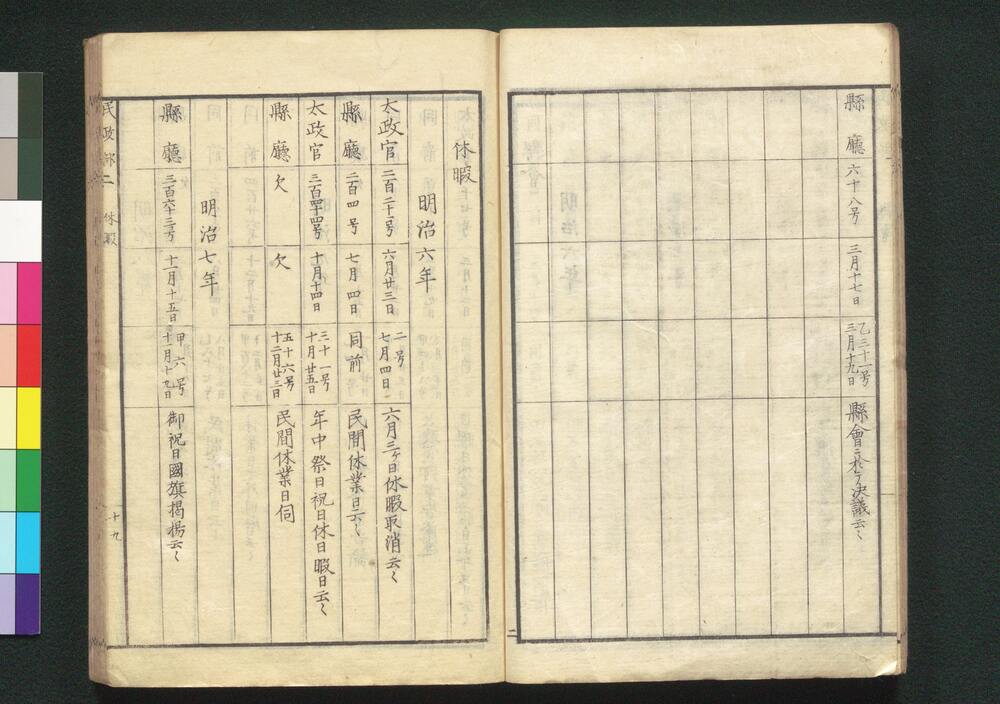 縣廳 六十八号 三月十七日 乙三十一号 三月十九日 縣會ニ於テ決議云〻
休暇
明治六年
太政官 二百二十一号 六月廿三日 二号 七月四日 六月三ヶ日休暇取消云〻
縣廳 二百四号 七月四日 同前 民間休業日云〻
太政官 三百四十四号 十月十四日 三十一号 十月廿五日 年中祭日祝日休日暇日云〻
縣廳 欠 欠 五十六号 十二月廿三日 民間休業日伺
明治七年
縣廳 三百六十三号 十一月十五日 甲六号 十一月十九日 御祝日國旗掲揚云〻
民政部二 休暇 十九